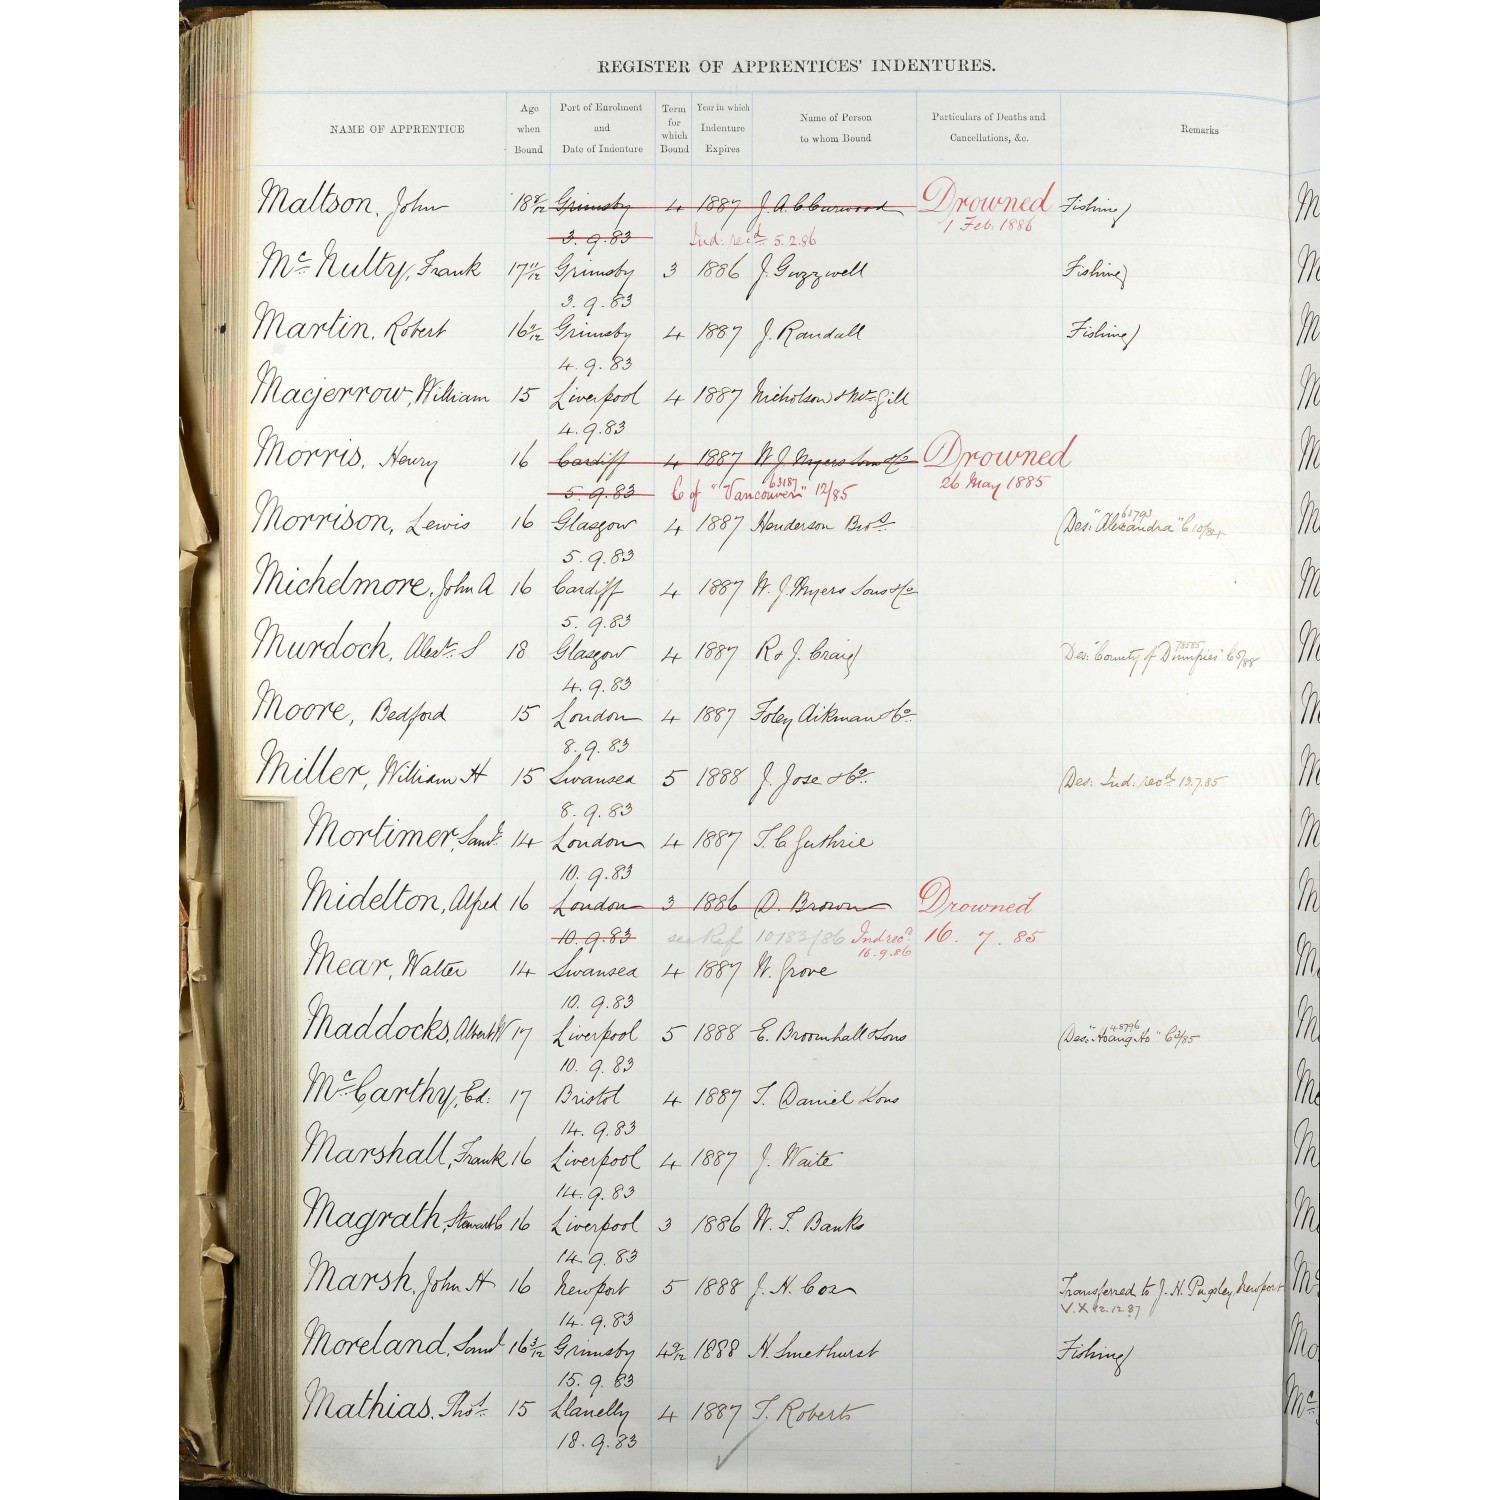 REGISTER OF APPRENTICES' INDENTURES.
NAME OF APPRENTICE
Age when Bound
Port of Enrolment and Date of Indenture
Term for which Bound
Year in which Indenture Expires
Name of Person to whom Bound
Particulars of Deaths and Cancellations, &c.
Remarks
Maltson, John 18 8/12 Grimsby 4 1887 J. A. C. Curwood Drowned Fishing
3.9.83 Ind: recd 5.2.86 1 Feb. 1886
McNulty, Frank 17 11/12 Grimsby 3 1886 J. Guzzwell Fishing
3.9.83
Martin, Robert 16 2/12 Grimsby 4 1887 J. Randall Fishing
4.9.83
Macjerrow, William 15 Liverpool 4 1887 Nicholson & McGill
4.9.83
Morris, Henry 16 Cardiff 4 1887 W. J. Myers Sons & Co Drowned
5.9.83 C of "Vancouver" 63187 12/85 26 May 1885
Morrison, Lewis 16 Glasgow 4 1887 Henderson Bros. Des: "Alexandra" 63793 C 10/84
5.9.83
Michelmore, John A 16 Cardiff 4 1887 W. J. Myers Sons & Co
5.9.83
Murdoch, Alexr. S 18 Glasgow 4 1887 R & J. Craig Des: "County of Dumfries" 78585 C 5/88
4.9.83
Moore, Bedford 15 London 4 1887 Foley Aikman & Co.
8.9.83
Miller, William H 15 Swansea 5 1888 J. Jose & Co. Des: Ind: recd 13.7.85
8.9.83
Mortimer, Saml. 14 London 4 1887 T. C. Guthrie
10.9.83
Midelton, Alfred 16 London 3 1886 D. Brown Drowned
10.9.83 see Ref 10783/86 Ind recd 16.9.86 16.7.85
Mear, Walter 14 Swansea 4 1887 W. Grove
10.9.83
Maddocks, Albert W 17 Liverpool 5 1888 E. Broomhall & Sons Des: "Hoang Ho" 48796 C 3/85
10.9.83
McCarthy, Ed: 17 Bristol 4 1887 T. Daniel & Sons
14.9.83
Marshall, Frank 16 Liverpool 4 1887 J. Waite
14.9.83
Magrath, Stewart C 16 Liverpool 3 1886 W. T. Banks
14.9.83
Marsh, John H 16 Newport 5 1888 J. H. Cox Transferred to J. H. Pugsley, Newport
14.9.83 V.X 12.12.87
Moreland, Saml 16 3/12 Grimsby 4 9/12 1888 H. Smethurst Fishing
15.9.83
Mathias, Thos. 15 Llanelly 4 1887 T. Roberts
18.9.83